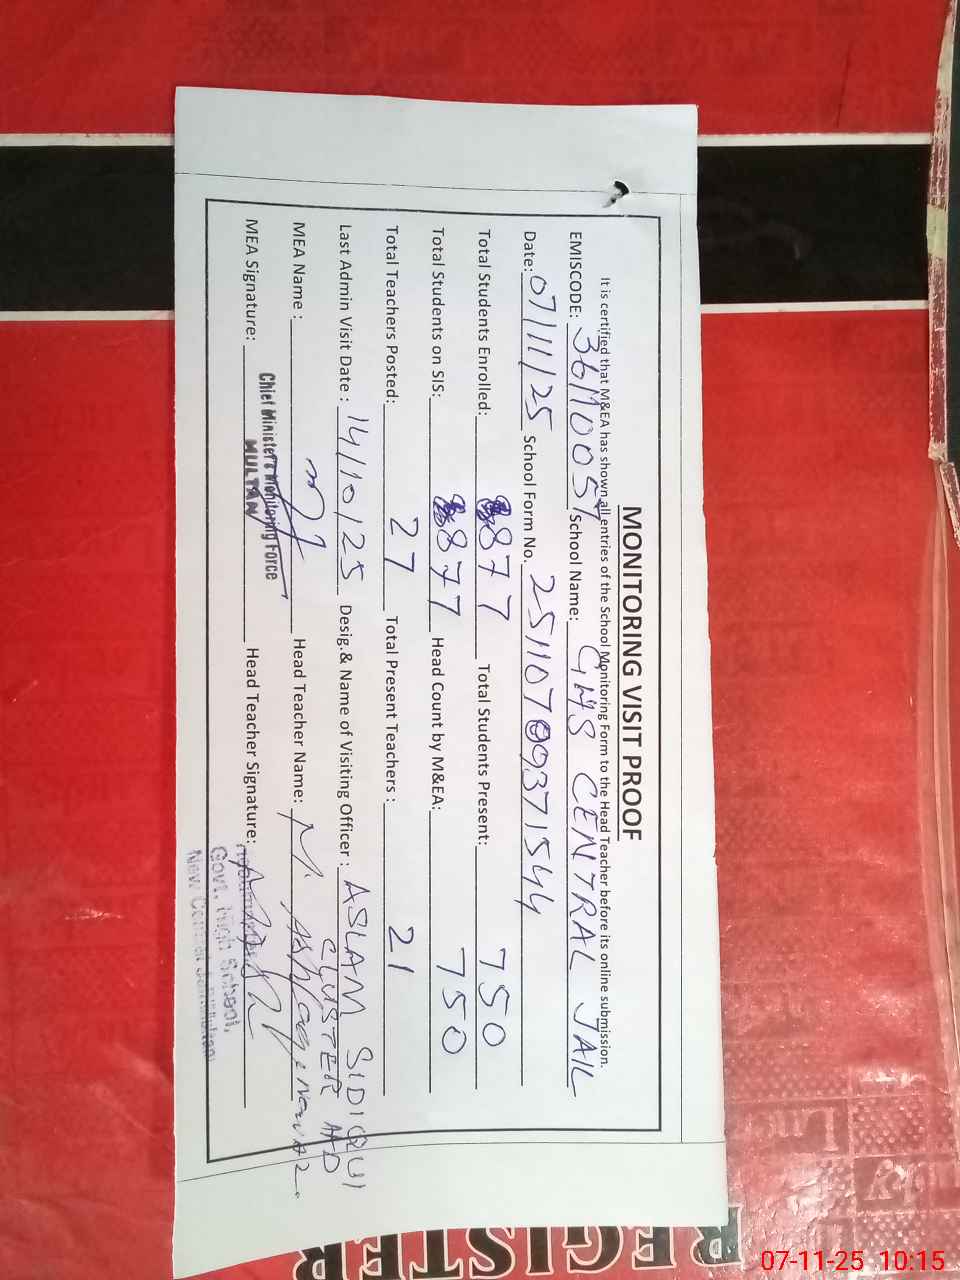 MONITORING VISIT PROOF
It is certified that M&EA has shown all entries of the School Monitoring Form to the Head Teacher before its online submission.
EMISCODE: School Name: GHS CENTRAL JAIL
Date: 07/11/25 School Form No.
Total Students Enrolled: 877 Total Students Present: 750
Total Students on SIS: 877 Head Count by M&EA: 750
Total Teachers Posted: 27 Total Present Teachers : 21
Last Admin Visit Date : 14/10/25 Desig.& Name of Visiting Officer : ASLAM SIDIQUI
CLUSTER
MEA Name : Head Teacher Name: M.
MEA Signature: Head Teacher Signature:
Chief Minister's Monitoring Force
MULTAN
Govt. High School,
New Central
REGISTER
07-11-25 10:15